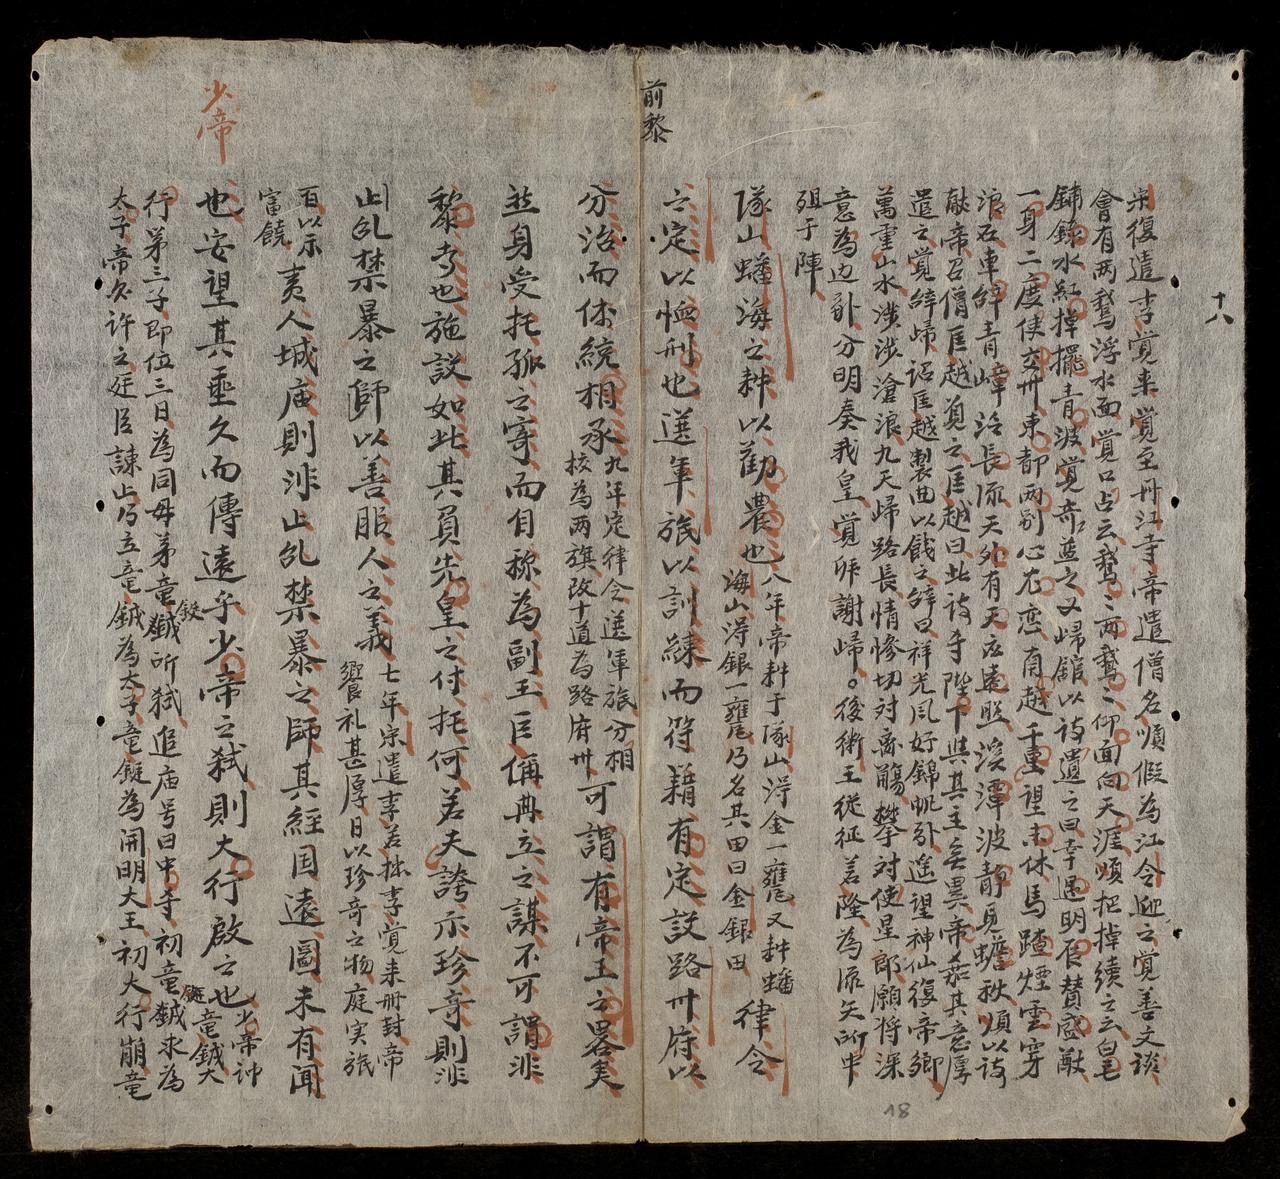 十八
宋復遣李覚来覚至册江寺帝遣僧名順假為江令迎之覚善文談
會有两鵝浮水面覚口占云鵝〻两鵝〻仰面向天涯順把掉續之云白毛
鋪錄水紅掉擺青波覚竒之又歸舘以詩遺之曰幸遇明辰賛盛猷
一身二度使交州東都两别心尤恋南越千重望未休馬踏煙雲穿
浪石車辞青嶂泛長流天外有天应遠照溪潭波静見蟾秋順以詩
献帝召僧匡越覌之匡越曰此詩寺陛下與其主無異帝嘉其意厚
遣之覚辞歸詔匡越製曲以餞之辞曰祥光風好錦帆張遥望神仙復帝鄉
萬重山水渉滄浪九天歸路長情慘切对离觴攀对使星郎願将深
意為边卦分明奏我皇覚拜謝歸。後術王従征善隆為流矢所中
殂于陣
隊山蟠海之耕以勸農也八年帝耕于隊山淂金一甕又耕蟠
海山淂銀一甕乃名其田曰金銀田
律令
之定以恤刑也選軍旅以訓練而符籍有定設路州府以
前黎
分治而体統相承九年定律令選軍旅分相
校為两旗改十道為路府州
可謂有帝王之畧矣
並身受托孤之寄而自称為副王臣偁冉立之謀不可謂非
黎孝也施設如此其負先皇之付托何若夫誇示珍竒則非
止乱禁暴之師以善眤人之義七年宋遣李若拙李覚来册封帝
饗礼甚厚日以珍奇之物庭実旅
百以示
富饒
夷人城庙則非止乱禁暴之師其經囯遠圖未有聞
少帝
也安望其垂久而傳遠乎少帝之弑則大行啟之也少帝仲
宗竜鉞大
行第三子即位三日為同母弟竜鋌所弑追庙号曰中寺初竜鉞求為
太子帝欲許之廷臣諫止乃立竜鉞為太子竜鋌為開明大王初大行崩竜
18